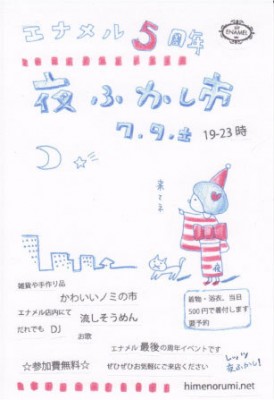 エナメル5周年
BY
ENAMEL
夜ふかし市
7.9.土 19-23時
来てネ
雑貨や手作り品
かわいいノミの市
エナメル店内にて
流しそうめん
だれでも DJ
お歌
着物・浴衣、当日
500円で着付します
要予約
エナメル最後の周年イベントです
☆参加費無料☆
ぜひぜひお気軽にご来店ください
レッツ
夜ふかし!
himenorumi.net